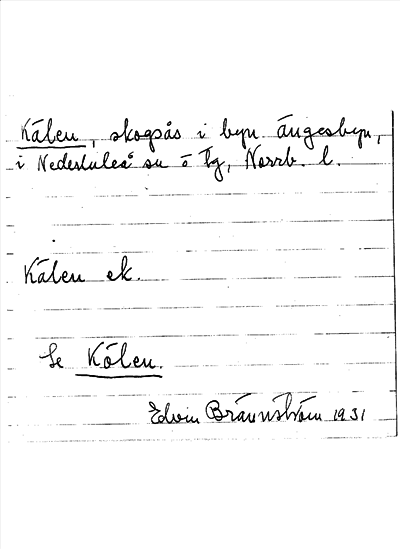 Kälen, skogsås i byn Ängesbyn,
i Nederluleå sn o tg, Norrb. l.
Kälen ek.
Se Kölen.
Edvin Brännström 1931